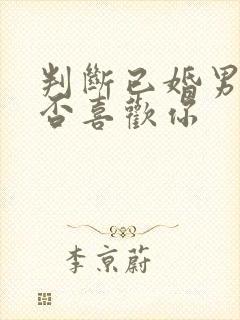 判斷已婚男
否喜歡你
李京蔚